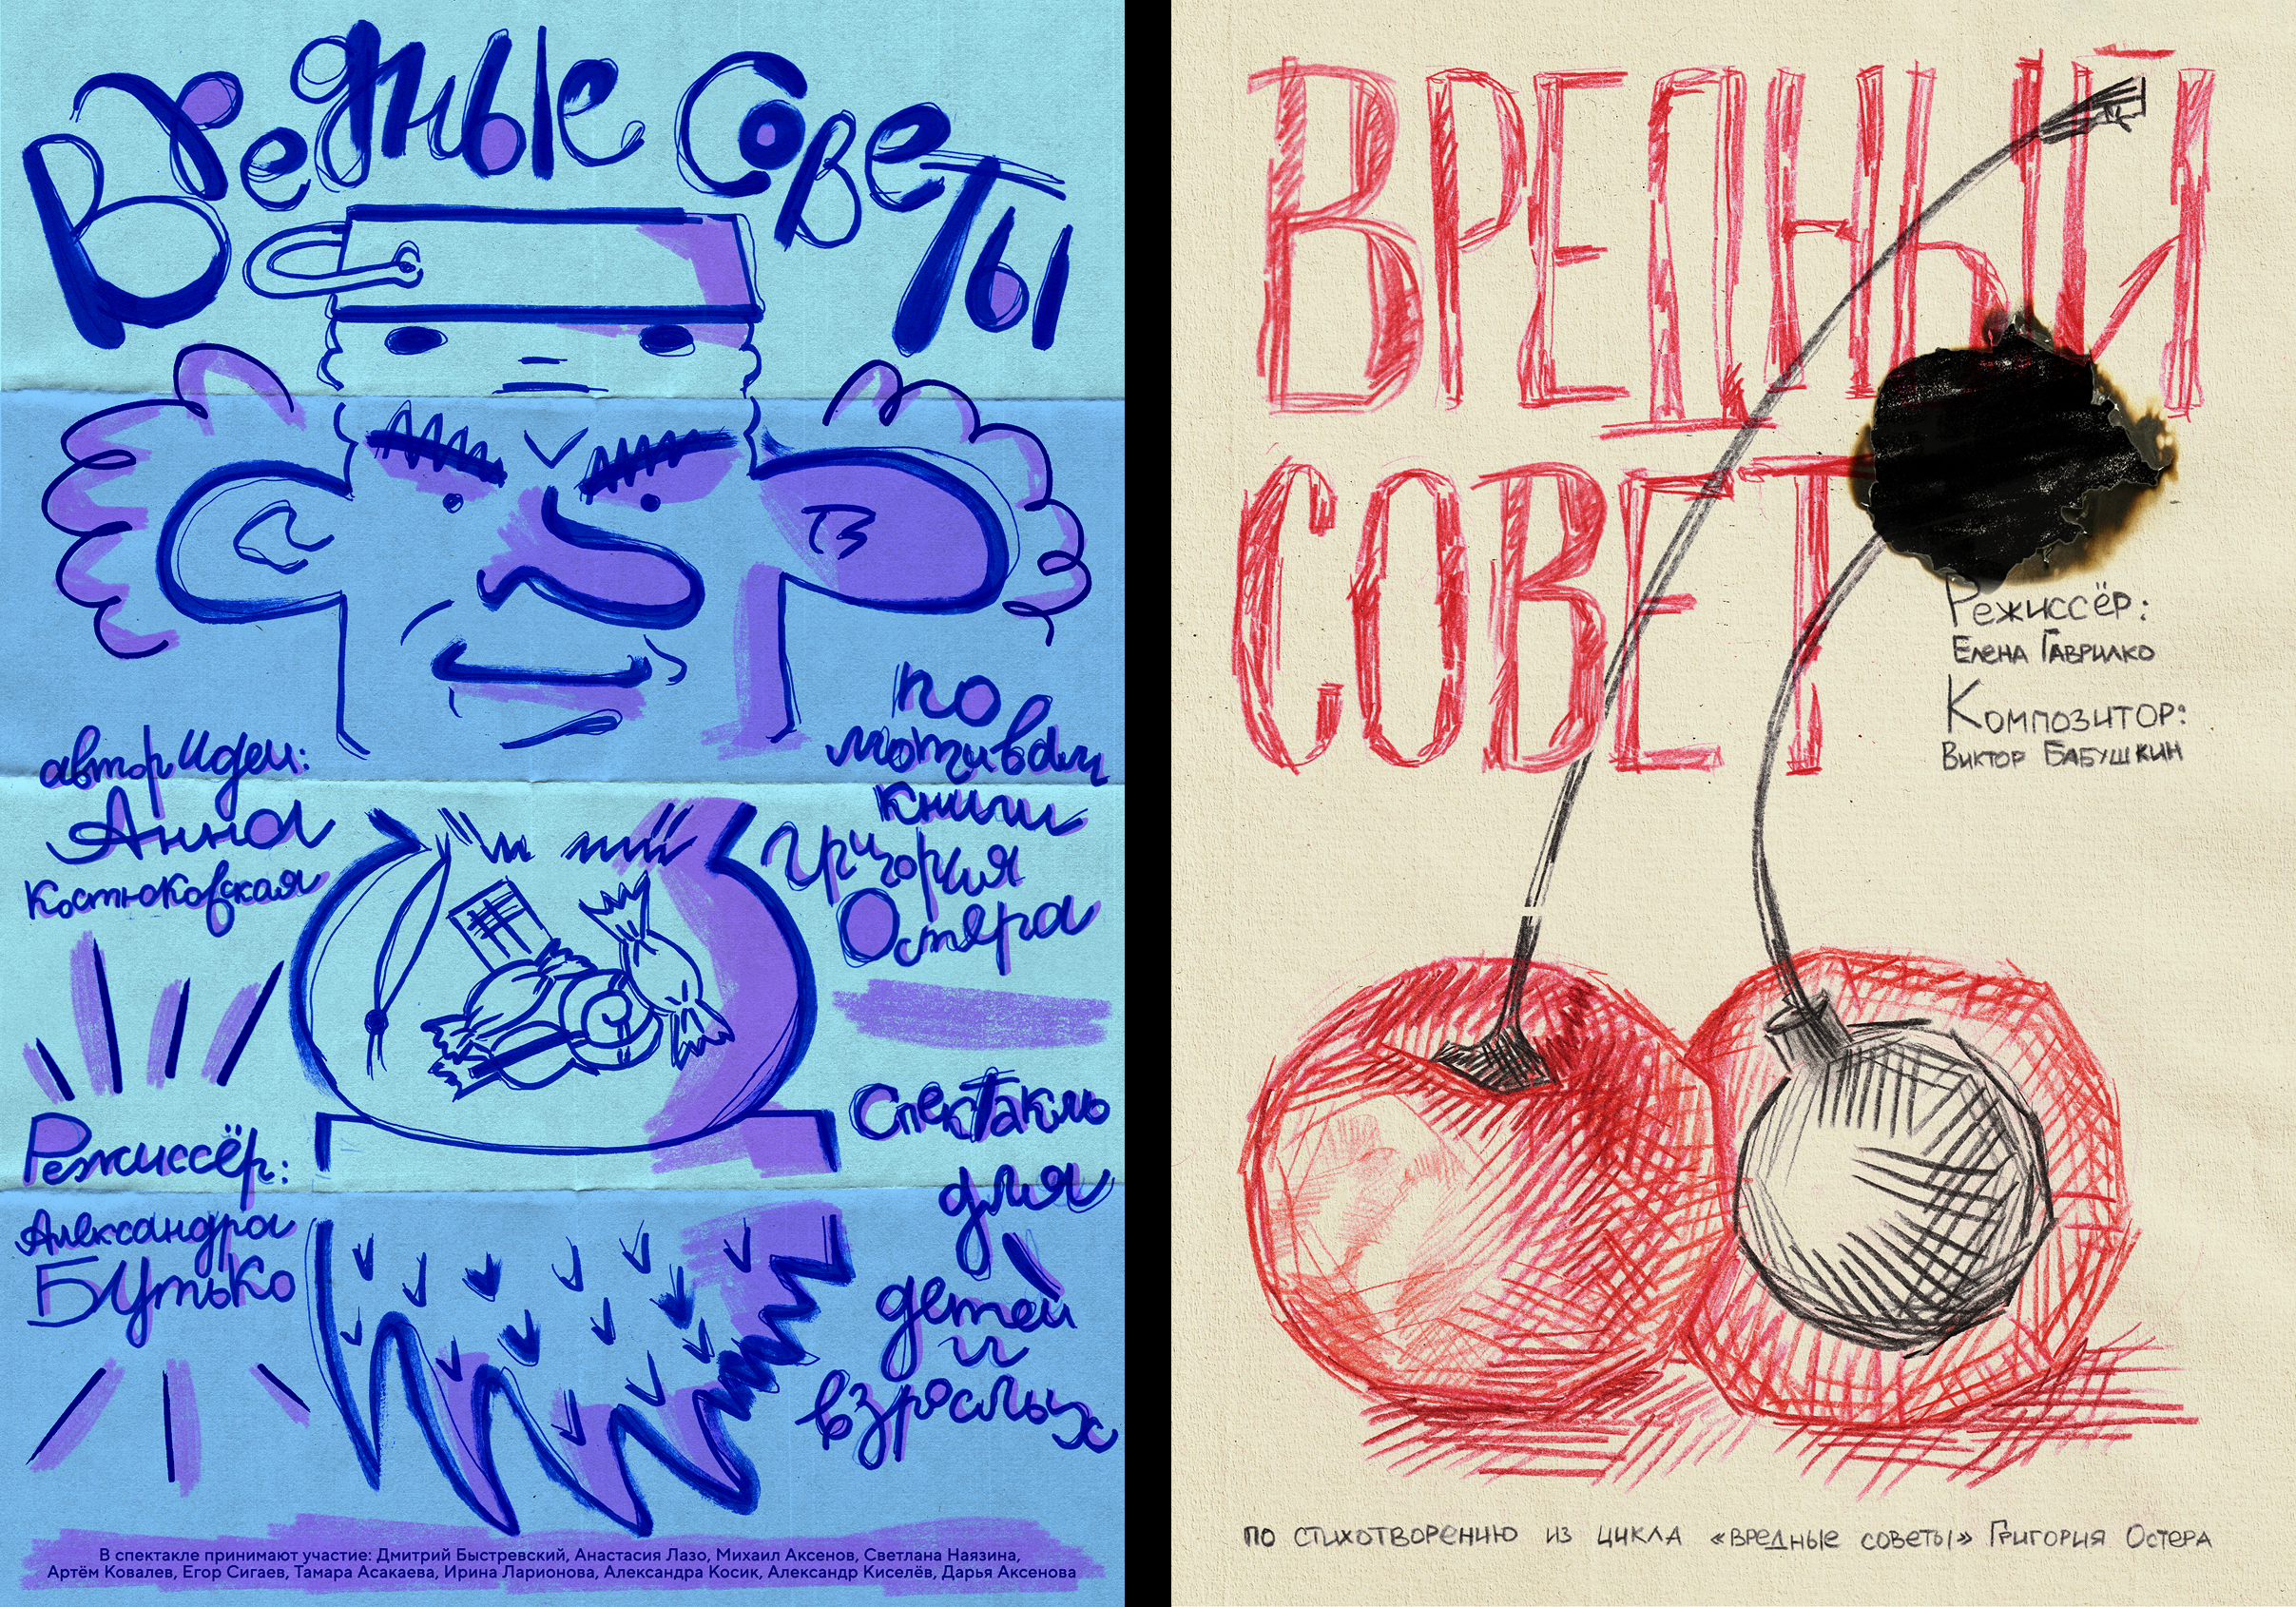 Вредные советы
автор идеи:
Анна
Костюковская
по
мотивам
книги
Григория
Остера
Режиссёр:
Александра
Бутько
Спектакль
для
детей
и
взрослых
В спектакле принимают участие: Дмитрий Быстревский, Анастасия Лазо, Михаил Аксенов, Светлана Наязина,
Артём Ковалев, Егор Сигаев, Тамара Асакаева, Ирина Ларионова, Александра Косик, Александр Киселёв, Дарья Аксенова
ВРЕДНЫЙ
СОВЕТ
Режиссёр:
Елена Гаврилко
Композитор:
Виктор Бабушкин
по стихотворению из цикла «Вредные советы» Григория Остера